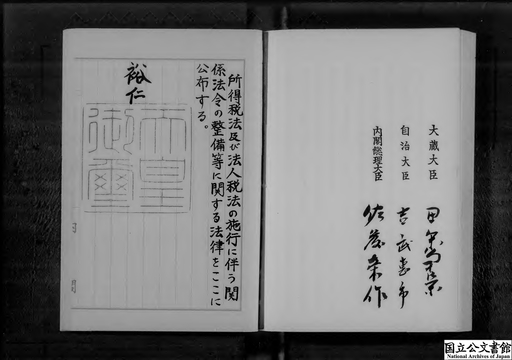 所得税法及び法人税法の施行に伴う関
係法令の整備等に関する法律をここに
公布する。
裕仁
天皇
御璽
大蔵大臣 田中角栄
自治大臣 吉武恵市
内閣総理大臣 佐藤栄作
国立公文書館
National Archives of Japan